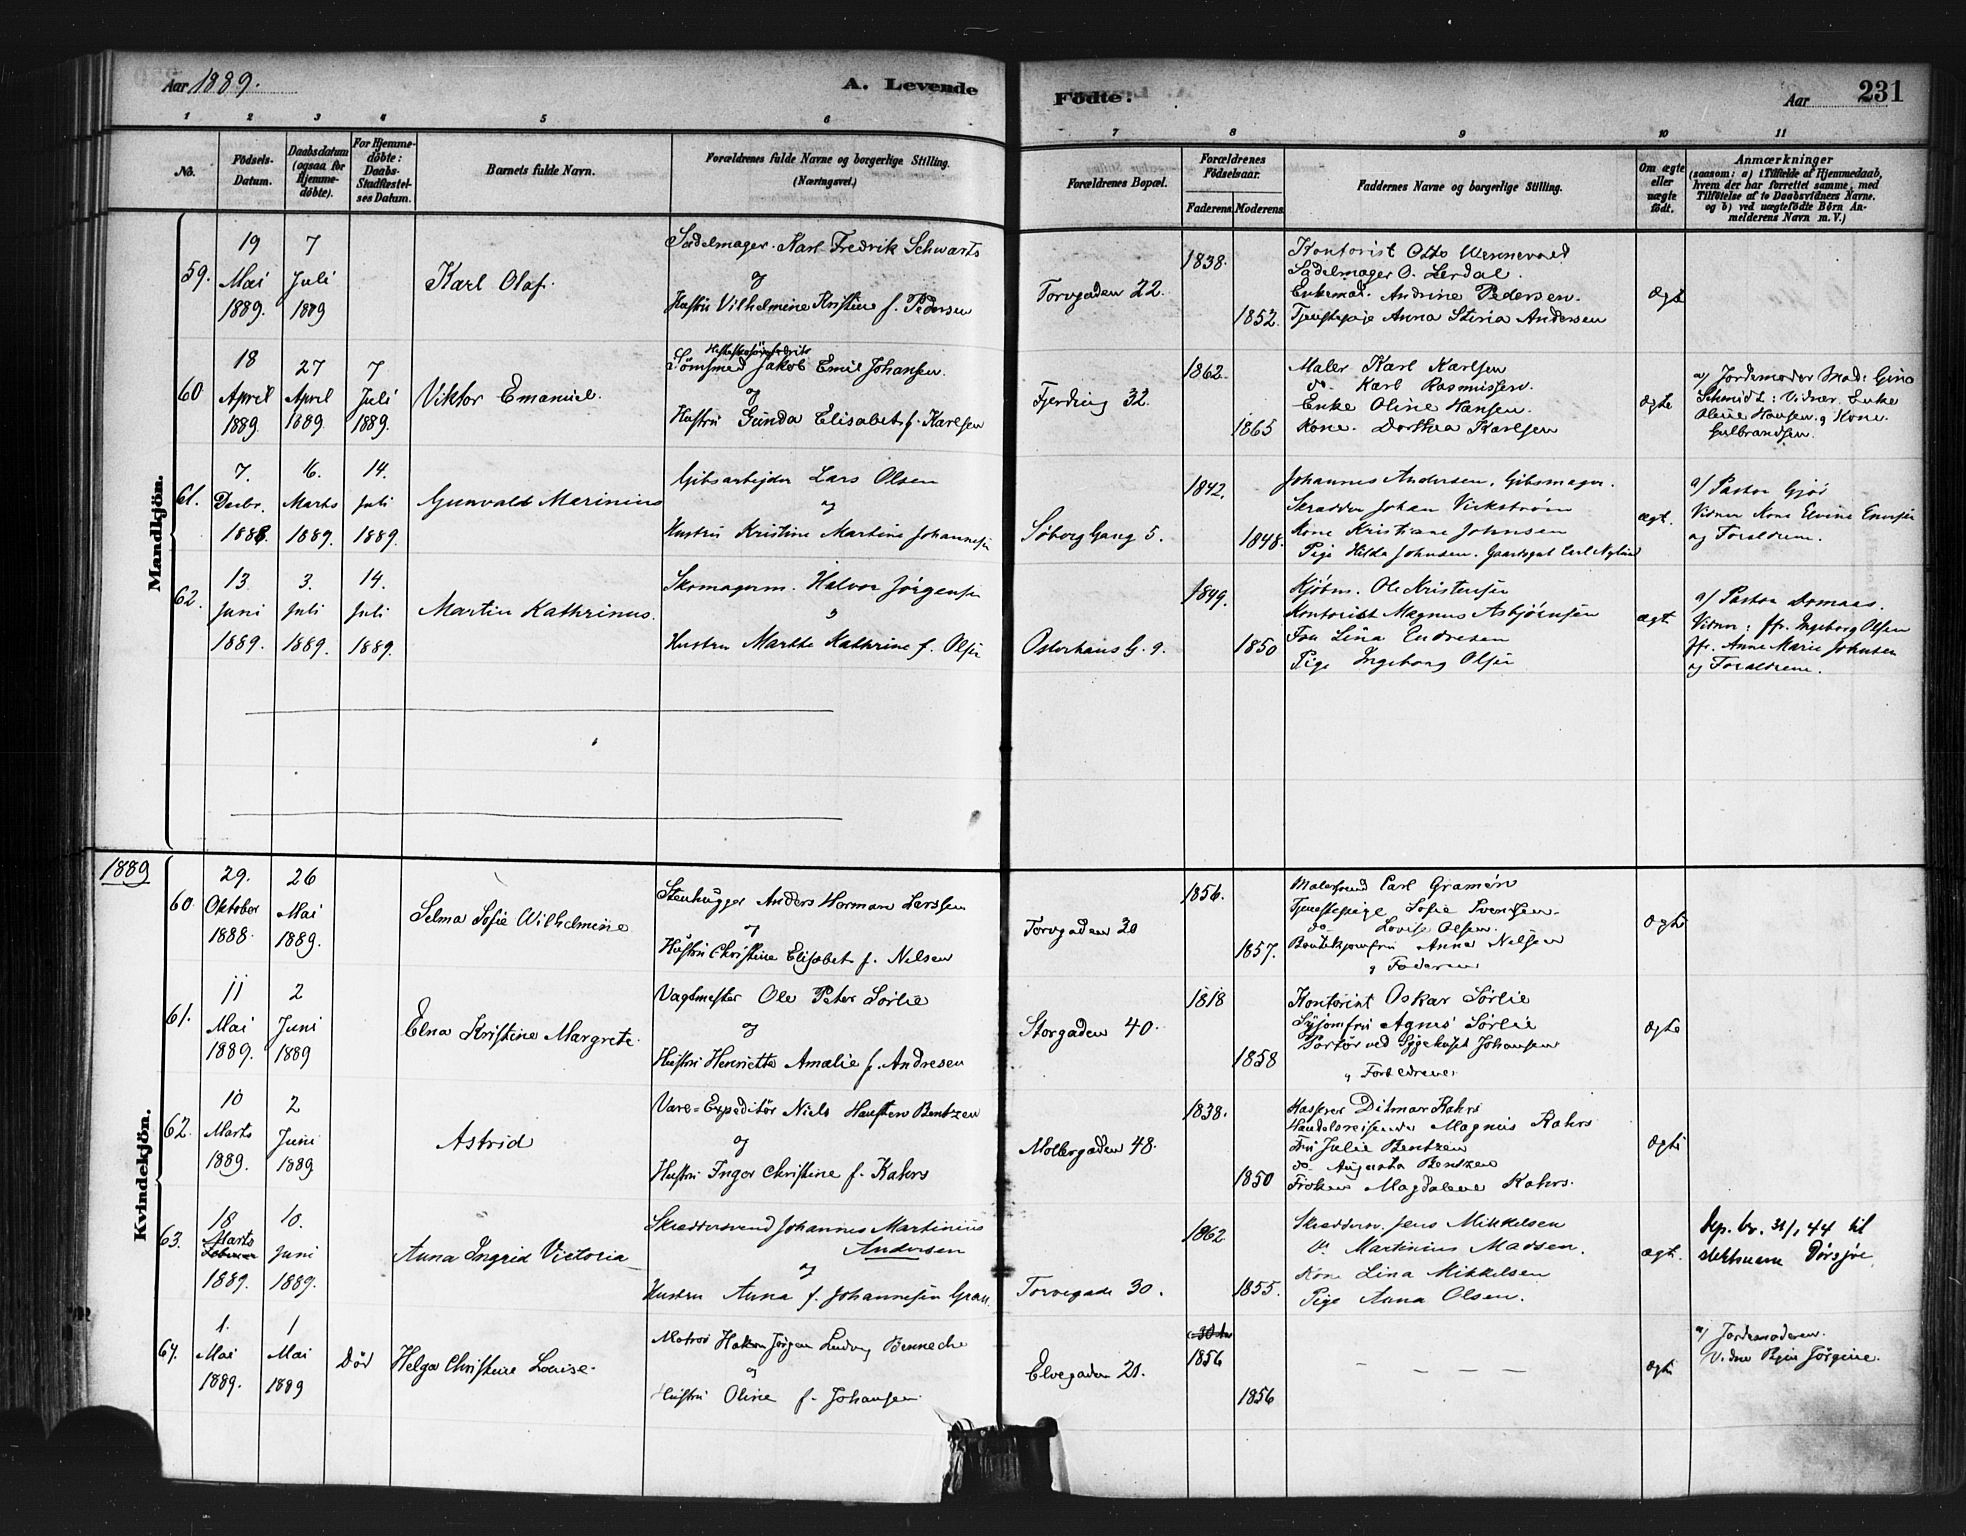 Aar 1889.
A. Levende
Födte:
Aar
231
1 2 3 4 5 6 7 8 9 10 11
No.
Födsels-
Datum.
Daabsdatum
(ogsaa for
Hjemme-
döbte).
For Hjemme-
döbte:
Daabs-
Stadfæstel-
ses Datum.
Barnets fulde Navn.
Forældrenes fulde Navne og borgerlige Stilling.
(Næringsvei.)
Forældrenes Bopæl.
Forældrenes
Födselsaar.
Faderens. Moderens.
Faddernes Navne og borgerlige Stilling.
Om ægte
eller
uægte
födt.
Anmærkninger
(saasom: a) i Tilfælde af Hjemmedaab,
hvem der har forrettet samme, med
Tilföielse af to Daabsvidners Navne.
og b) ved uægtefödte Börn An-
melderens Navn m. V.)
Mandkjön.
59.
19
Mai
1889.
7
Juli
1889
Karl Olaf.
Sadelmager Karl Fredrik Schwarts
og
Hustru Vilhelmine Kristine f. Pedersen
Torvgaden 22.
1838.
1852.
Kontorist Otto Wennevold
Sadelmager O. Lerdal.
Enkemad. Andrine Pedersen.
Tjenestepige Anna Stina Andersen
Ægt
60
18
April
1889.
27
April
1889.
7
Juli
1889.
Viktor Emanuel.
Sömsmed Jakob Emil Johansen.
og
Hustru Gunda Elisabet f. Karlsen
Fjerding 32.
1862.
1865
Maler Karl Karlsen
do. Karl Rasmussen.
Enke Oline Hansen.
Kone. Dorthea Karlsen
Ægte
a) Jordemoder Mad: Gina
Schmidt: Vidner. Enke
Oline Hansen. og Kone.
Gulbrandsen.
61.
7.
Decbr.
1888.
16.
Marts
1889.
14.
Juli
1889.
Gunvald Marinius
Gibsarbejder Lars Olsen
og
Hustru Kristine Martine Johannesen
Söborg Gang 5.
1842.
1848.
Johannes Andersen, Gibsmager.
Skrædder Johan Vickström
Kone Kristiane Johnsen
Pige Hilda Johnsen. Gaardsgut Carl Nylund
ægt.
a) Pastor Gjör
Vidner Kone Elvine
og Forældrene.
62.
13
Juni
1889.
3.
Juli
1889.
14.
Juli
1889.
Martin Kathrinus.
Skomagerm. Halvor Jörgensen
og
Hustru Marthe Kathrine f. Olsen
Osterhaus G. 9.
1849.
1850
Kjöbm. Ole Kristensen
Kontorist Magnus Asbjörnsen
Fru Lina Endresen
Pige Ingeborg Olsen
ægt.
a) Pastor Domaas.
Vidner: fr. Ingeborg Olsen
fr. Anne Marie Johnsen
og Forældrene.
1889
Kvindekjön.
60.
29.
Oktober
1888.
26
Mai
1889.
Selma Sofie Wilhelmine
Stenhugger Anders Herman Larssen
og
Hustru Christine Elisabet f. Nelsen
Torvgaden 30
1856.
1857.
Malersvend Carl Gramén
Tjenestepige Sofie Svensen.
do Lovise Olsen.
Butikjomfru Anna Nelsen
og Faderen
Ægte
61.
11
Mai
1889.
2
Juni
1889
Elna Kristine Margrete.
Vagtmester Ole Peter Sörlie
og
Hustru Henriette Amalie f. Andresen
Storgaden 40.
1818
1858
Kontorist Oskar Sörlie
Syjomfru Agnes Sörlie
Portör ved Sygehuset Johansen
og Forældrene.
Ægte
62.
10
Marts
1889.
2
Juni
1889
Astrid
Vare-Expeditör Niels Hansten Bentzen
og
Hustru Inger Christine f. Kahrs
Möllergaden 48.
1838.
1850
Kasserer Ditmar Kahrs
Handelsreisende Magnus Kahrs
Fru Julie Bentzen
do. Augusta Bentzen
Fröken Magdalene Kahrs.
Ægte
63.
18
Marts
1889.
10.
Juni
1889.
Anna Ingrid Victoria
Skræddersvend Johannes Martinius
Andersen
og
Hustru Anna f. Johannesen Gran.
Torvegade 30.
1862
1855.
Skræddersv. Jens Mikkelsen
Martinius Madsen.
Kone Lina Mikkelsen
Pige Anna Olsen.
ægt.
44 til
64.
1.
Mai
1889.
1
Mai
1889
Död
Helga Christine Louise.
Matros Hakon Jörgen Ludvig Bennecke
og
Hustru Oline f. Johansen
Elvegaden 21.
1856
1856
Ægte
a) Jordemoderen.
Vidne Pige Jörgine.